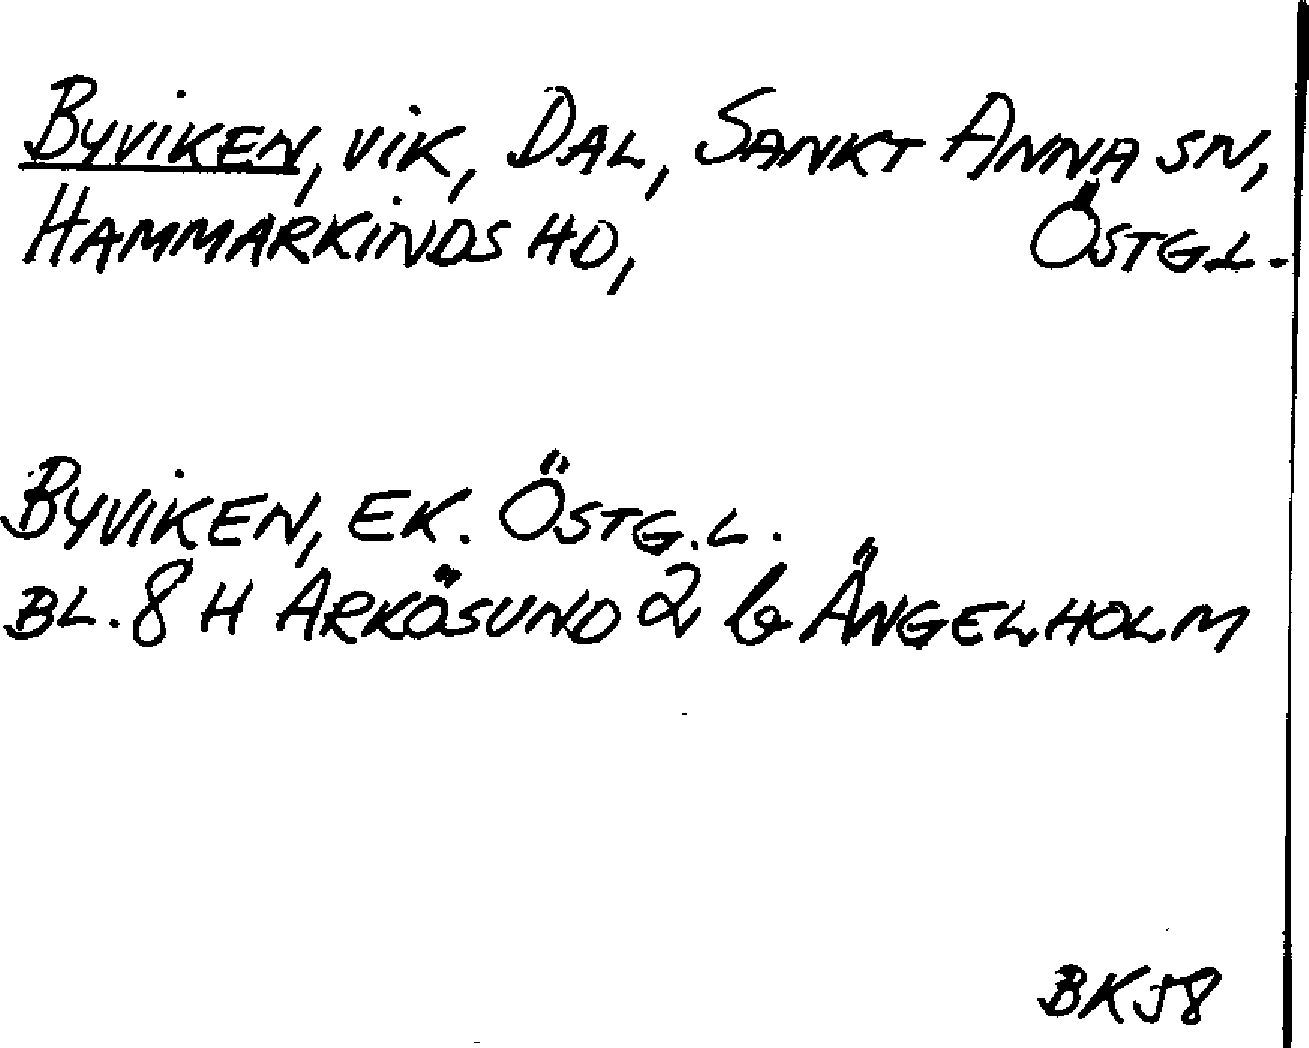 BYVIKEN, VIK, DAL, SANKT ANNA SN,
HAMMARKINDS HD, ÖSTG.L.
BYVIKEN, EK. ÖSTG.L.
BL. 8 H ARKÖSUND 2 b ÄNGELHOLM
BK58